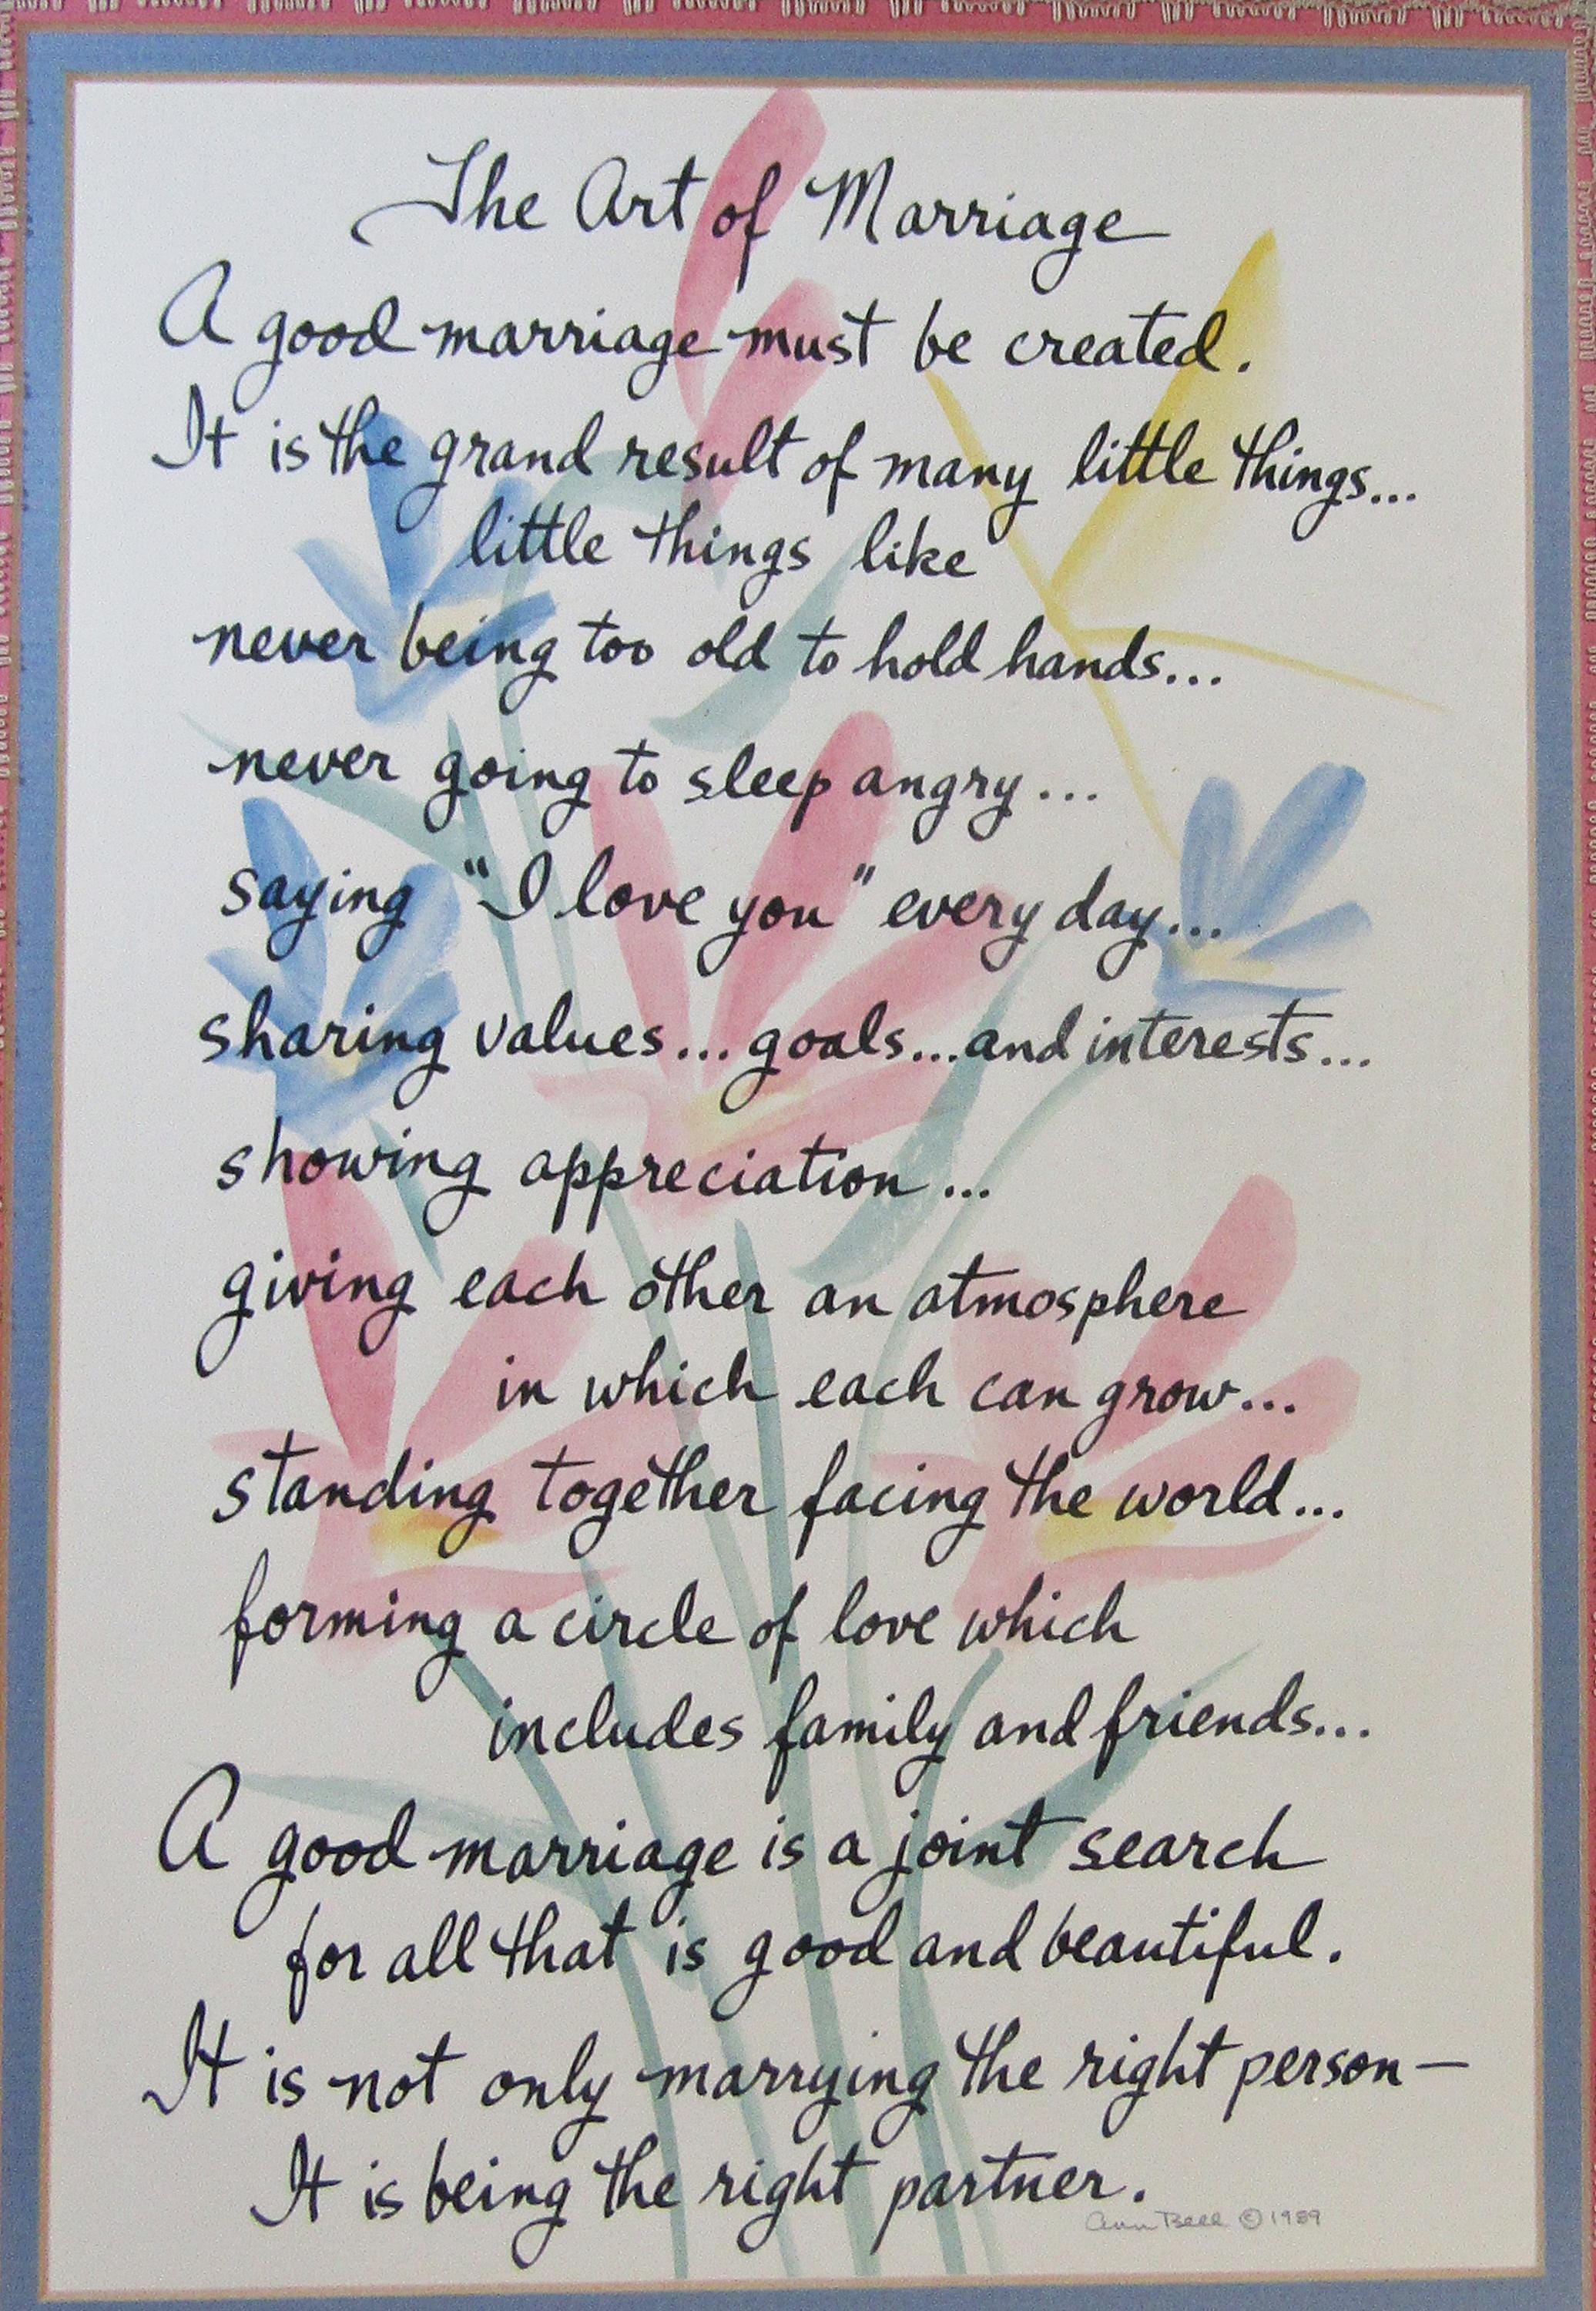 The Art of Marriage
A good marriage must be created.
It is the grand result of many little things...
little things like
never being too old to hold hands...
never going to sleep angry...
saying "I love you" every day...
sharing values... goals... and interests...
showing appreciation...
giving each other an atmosphere
in which each can grow...
standing together facing the world...
forming a circle of love which
includes family and friends...
A good marriage is a joint search
for all that is good and beautiful.
It is not only marrying the right person—
It is being the right partner.
Ann Bell © 1989